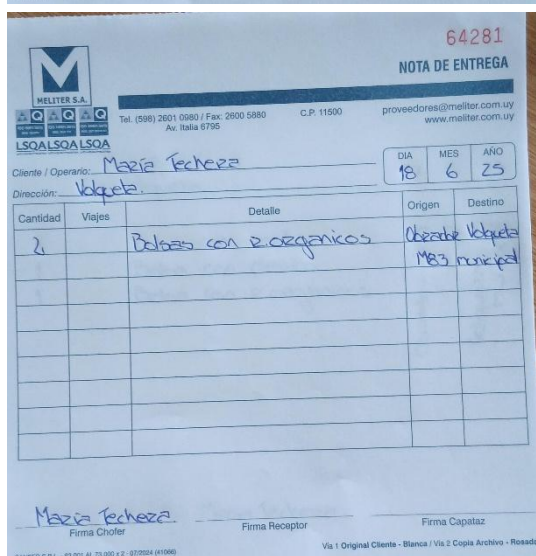 64281
NOTA DE ENTREGA
MELITER S.A.
LSQA LSQA LSQA
Tel. (598) 2601 0980 / Fax: 2600 5880
Av. Italia 6795
C.P. 11500
proveedores@meliter.com.uy
www.meliter.com.uy
Cliente / Operario: Mazia Techeza
Dirección: Volqueta.
DIA MES AÑO
18 6 25
Cantidad Viajes Detalle Origen Destino
2 Bolsas con r. organicos Obrador Volqueta
M83 municipal
Mazia Techeza
Firma Chofer Firma Receptor Firma Capataz
Vía 1 Original Cliente - Blanca / Vía 2 Copia Archivo - Rosado